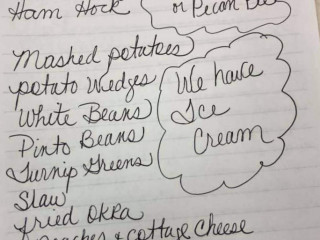 Ham Hock
or Pecan
Mashed potatoes
potato Wedges
White Beans
Pinto Beans
Turnip Greens
Slaw
fried OKRa
Peaches & Cottage Cheese
We have
Ice
Cream